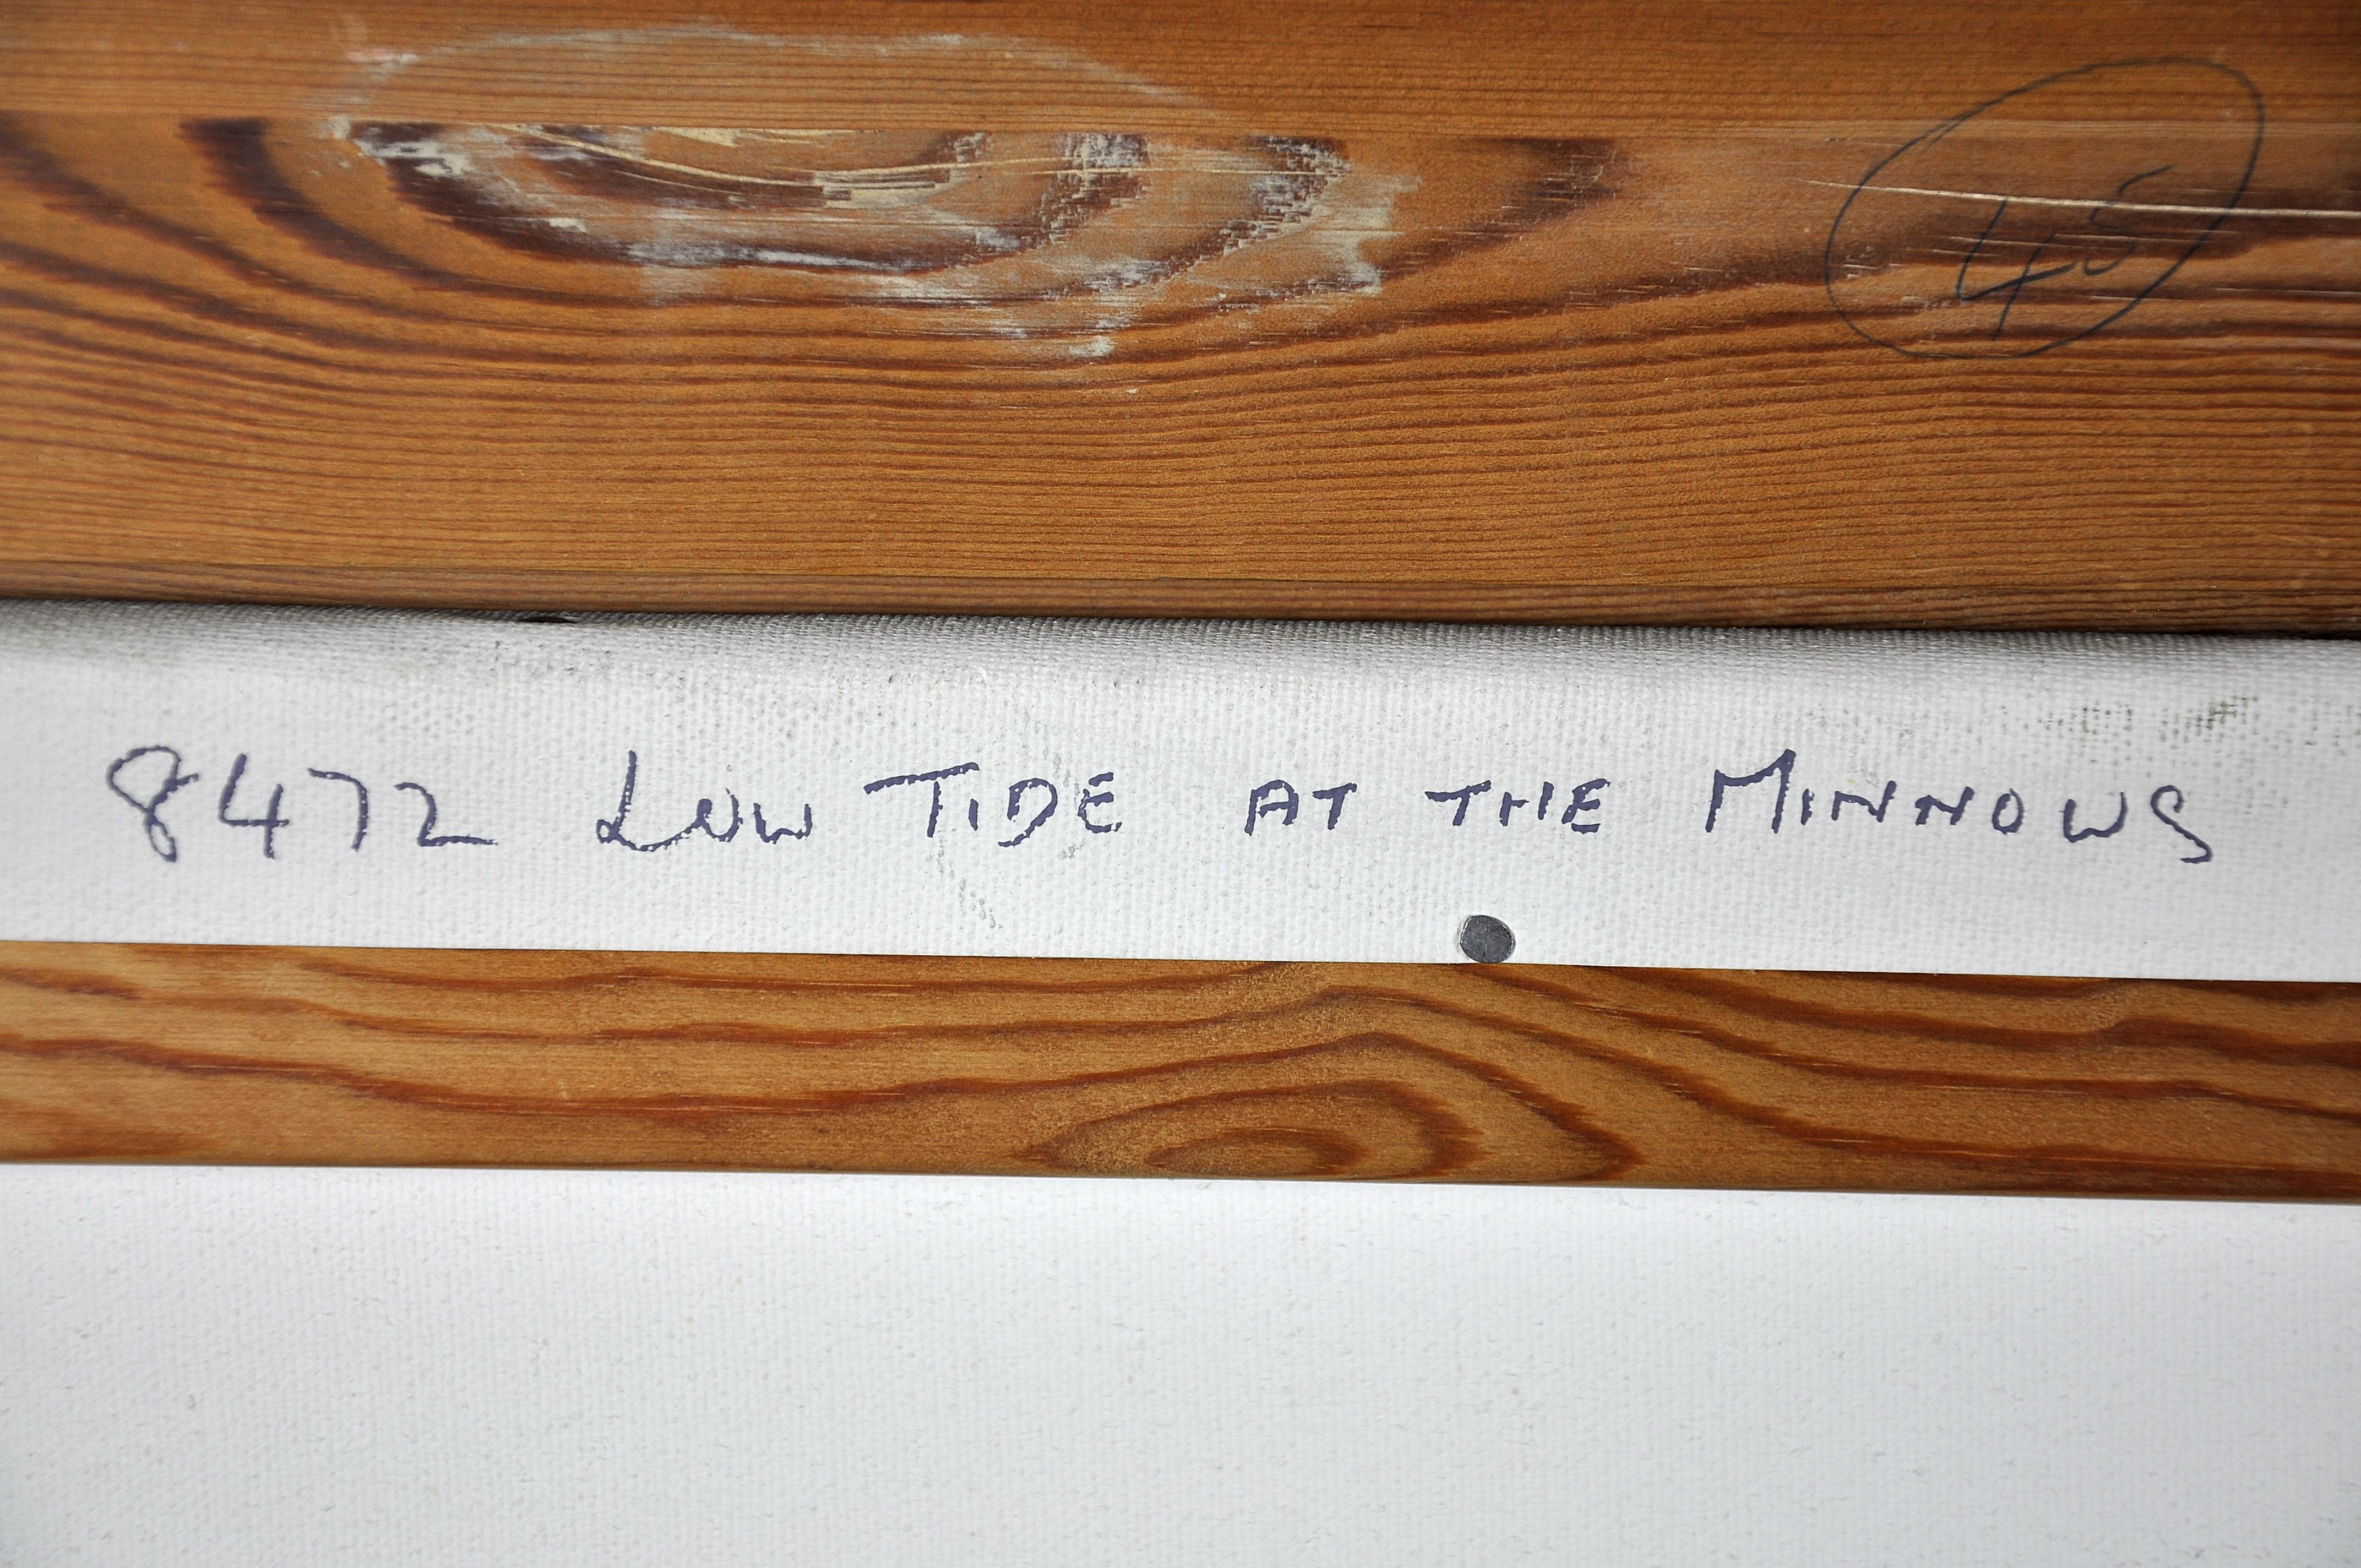 45
8472 LOW TIDE AT THE MINNOWS